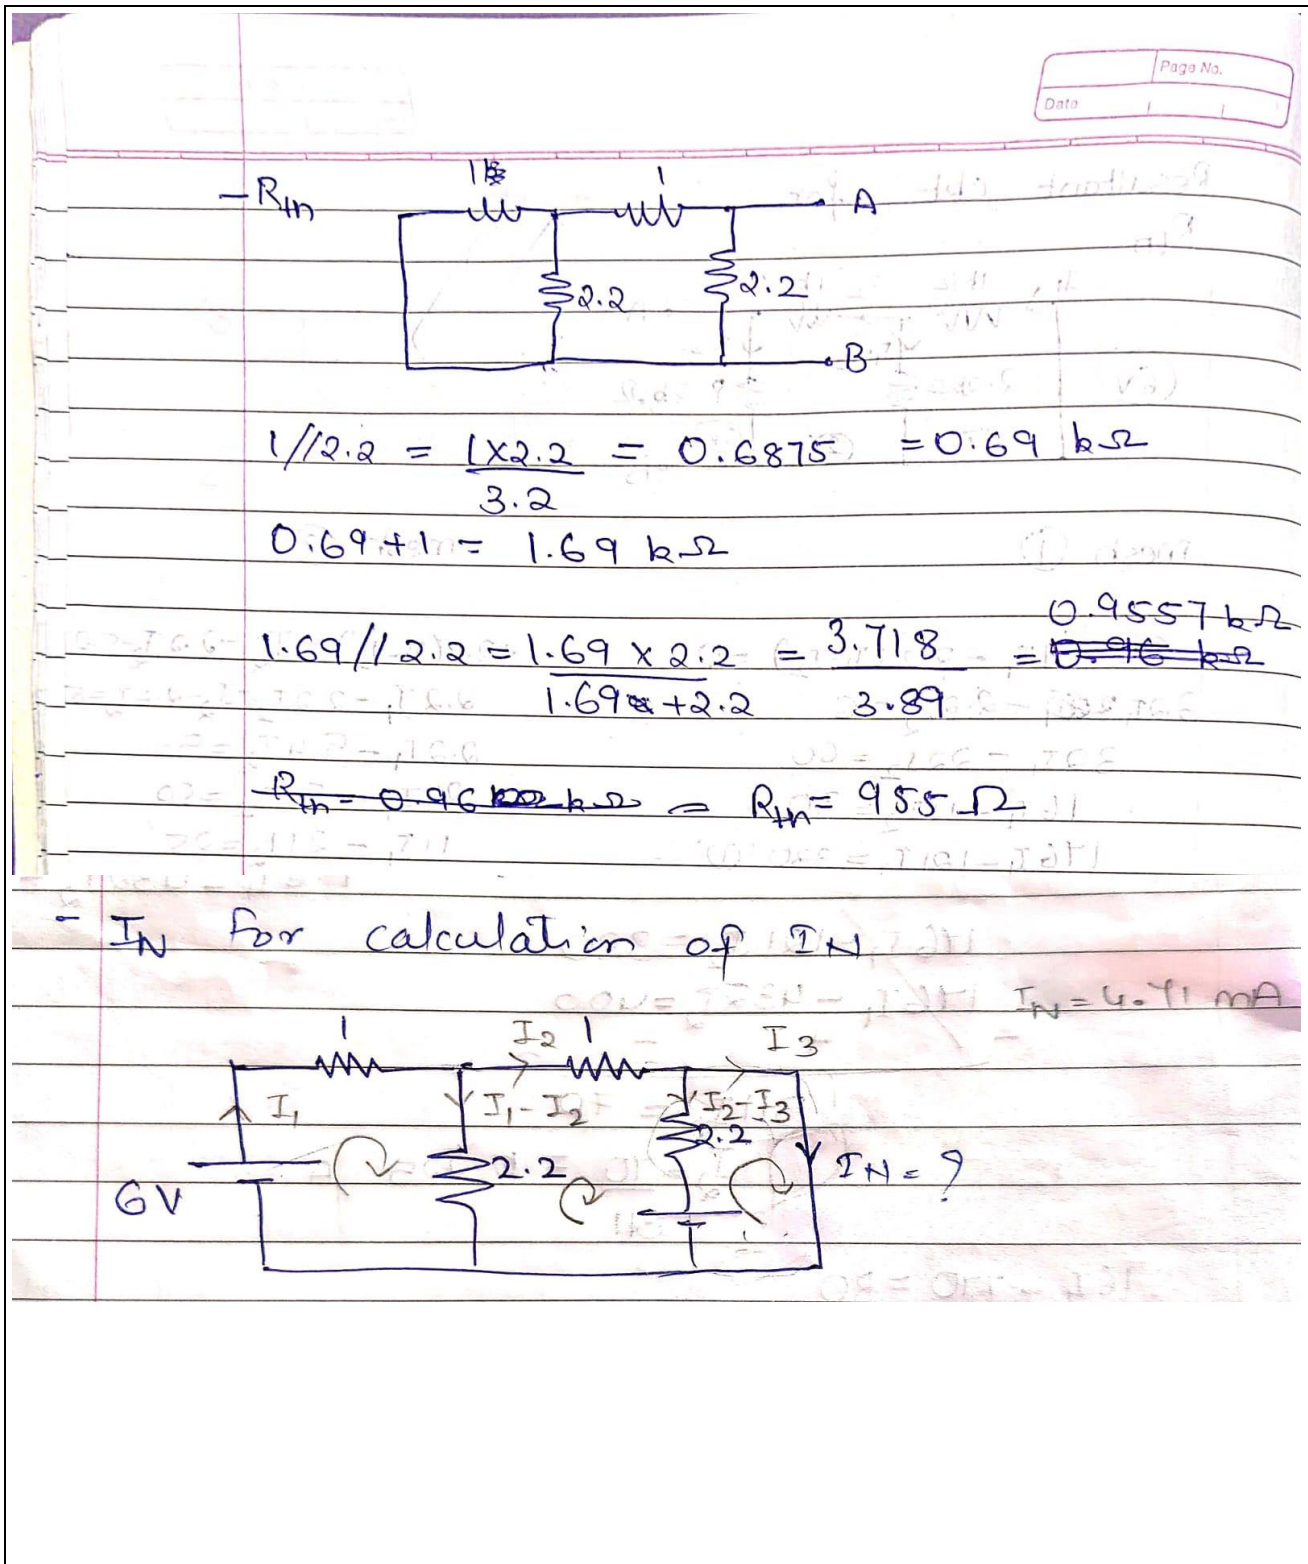 Page No.
Date
- Rth
1k 1
A
2.2 2.2
B
1//2.2 = 1×2.2 / 3.2 = 0.6875 = 0.69 kΩ
0.69 + 1 = 1.69 kΩ
1.69 // 2.2 = 1.69 × 2.2 / 1.69 + 2.2 = 3.718 / 3.89 = 0.9557 kΩ
0.96 kΩ
Rth = 0.96 kΩ = Rth = 955 Ω
- IN for calculation of IN
IN = 4.71 mA
1 I2 1 I3
I1 I1-I2 I2-I3
2.2
2.2 IN = ?
6V